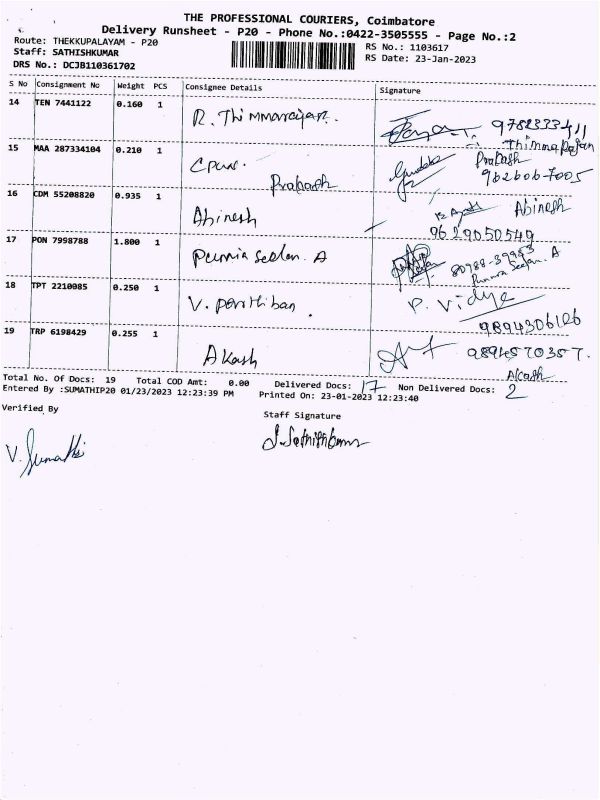 THE PROFESSIONAL COURIERS, Coimbatore
Delivery Runsheet - P20 - Phone No.:0422-3505555 - Page No.:2
Route: THEKKUPALAYAM - P20
RS No.: 1103617
Staff: SATHISHKUMAR
RS Date: 23-Jan-2023
DRS No.: DCJB110361702
S No Consignment No Weight PCS Consignee Details Signature
14 TEN 7441122 0.160 1 R. Thimmarayan.
Thimmarajan
15 MAA 287334104 0.210 1
Prakash Prakash
16 CDM 55208820 0.935 1 Abinesh Abinesh
9629050549
17 PON 7998788 1.800 1 A
18 TPT 2210085 0.250 1 V. Parithiban. P. Vidya
9894306106
19 TRP 6198429 0.255 1 Akash
Akash
Total No. Of Docs: 19 Total COD Amt: 0.00 Delivered Docs: 17 Non Delivered Docs: 2
Entered By :SUMATHIP20 01/23/2023 12:23:39 PM Printed On: 23-01-2023 12:23:40
Verified By
Staff Signature
V. Sumathi